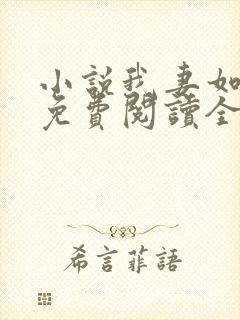 小說我妻如
免費閱讀全
希言菲語